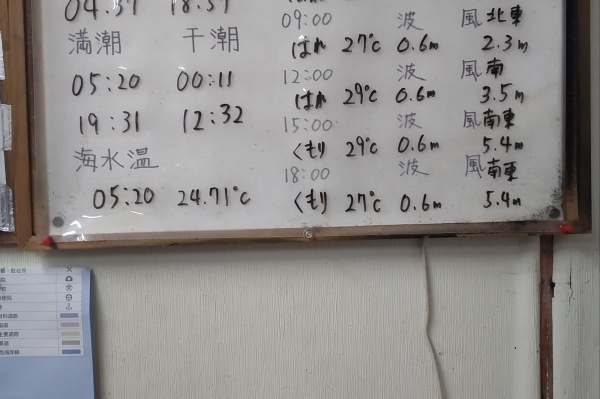 04:37 18:37
満潮 干潮
05:20 00:11
19:31 12:32
海水温
05:20 24.71℃
09:00 波 風北東
はれ 27℃ 0.6m 2.3m
12:00 波 風南
はれ 29℃ 0.6m 3.5m
15:00 波 風南東
くもり 29℃ 0.6m 5.4m
18:00 波 風南東
くもり 27℃ 0.6m 5.4m